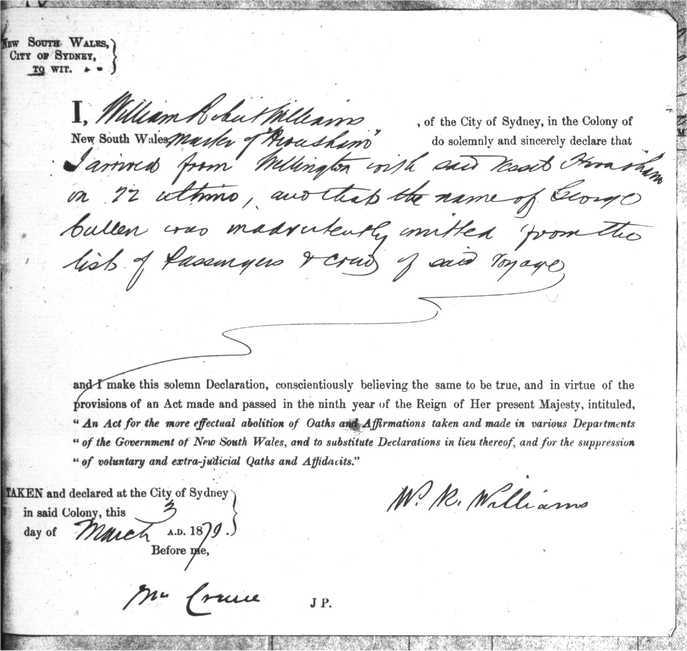 New South Wales,
City of Sydney,
to wit.
I, William Robert Williams , of the City of Sydney, in the Colony of
New South Wales Master of do solemnly and sincerely declare that
I arrived from Wellington with said Vessel
on 22 ultimo, and that the name of George
Cullen was inadvertently omitted from the
list of Passengers & crew of said Voyage
and I make this solemn Declaration, conscientiously believing the same to be true, and in virtue of the
provisions of an Act made and passed in the ninth year of the Reign of Her present Majesty, intituled,
" An Act for the more effectual abolition of Oaths and Affirmations taken and made in various Departments
" of the Government of New South Wales, and to substitute Declarations in lieu thereof, and for the suppression
" of voluntary and extra-judicial Oaths and Affidavits."
TAKEN and declared at the City of Sydney
in said Colony, this 3
day of March A.D. 1879.
Before me,
W. R. Williams
J P.